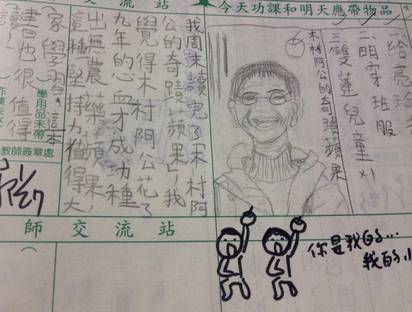 交流站
今天功課和明天應帶物品
二明穿班服
三雙蓮兒童x1
木村阿公的奇蹟蘋果
我周末讀完了木村阿
公的奇蹟蘋果,我
覺得木村阿公花了
九年的心血才成功種
出無農藥蘋果,
這種堅持力值得大
家學習!這本
書也很值得
學用品未帶
教師簽章處
師交流站
你是我的...
我的